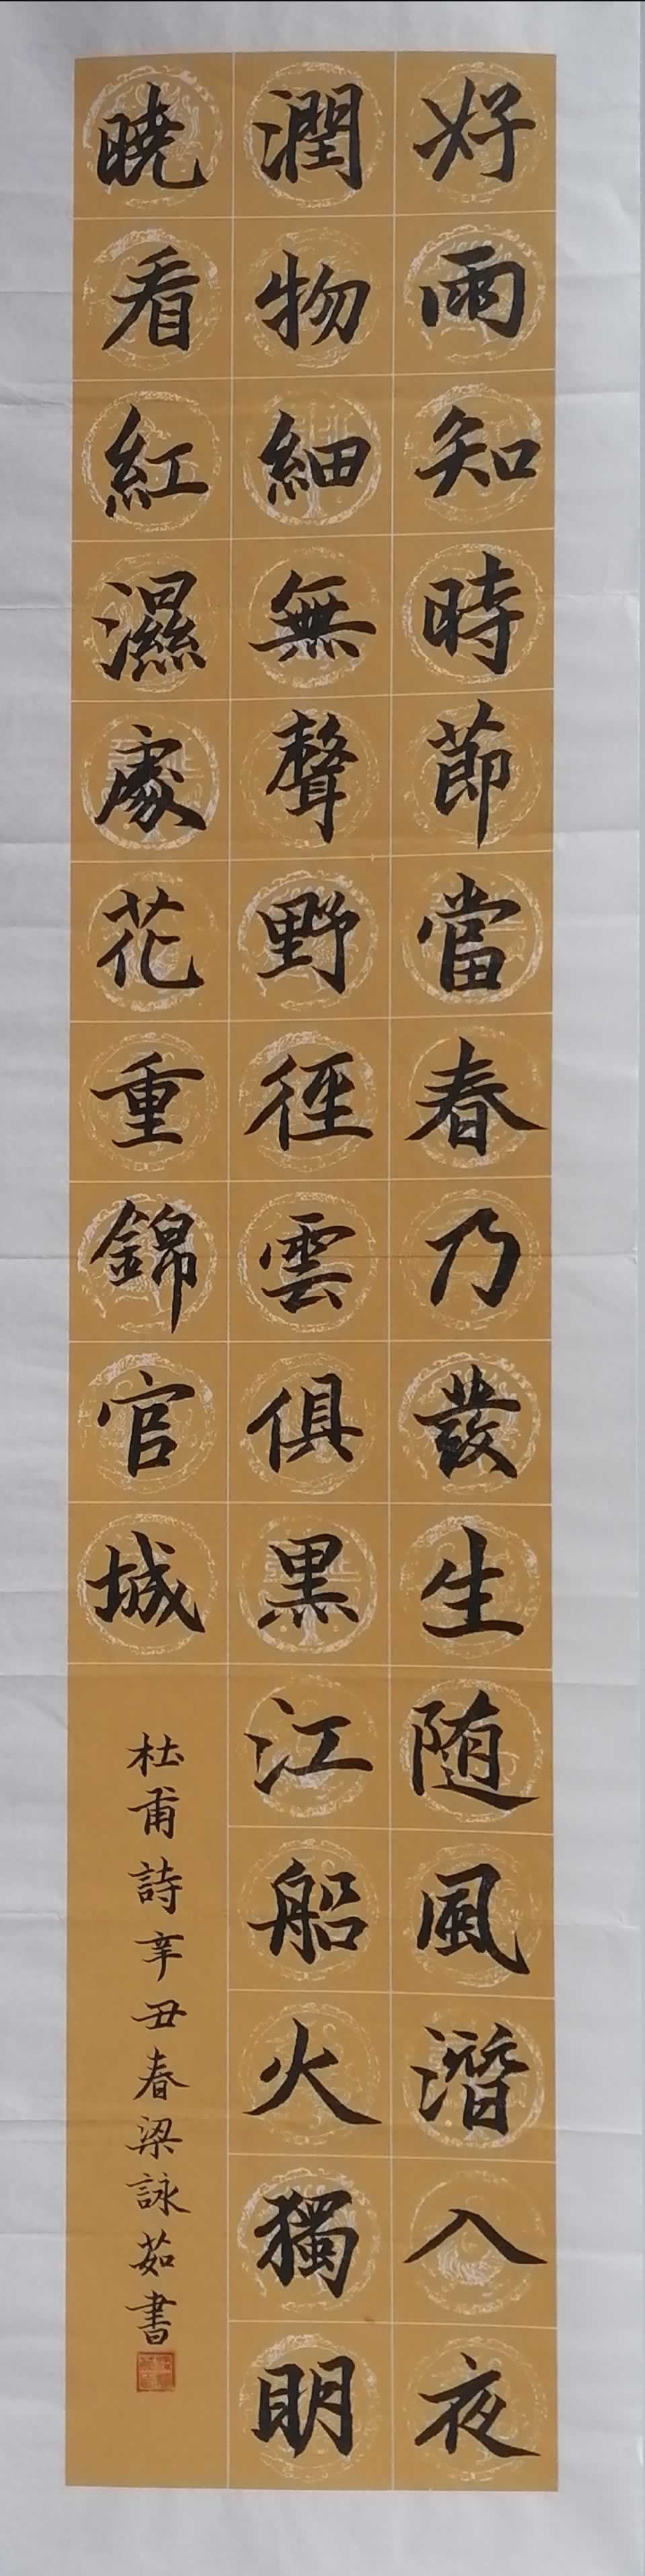 好雨知時節當春乃發生随風潛入夜
潤物細無聲野徑雲俱黑江船火獨明
曉看紅濕處花重錦官城
杜甫詩辛丑春梁詠茹書